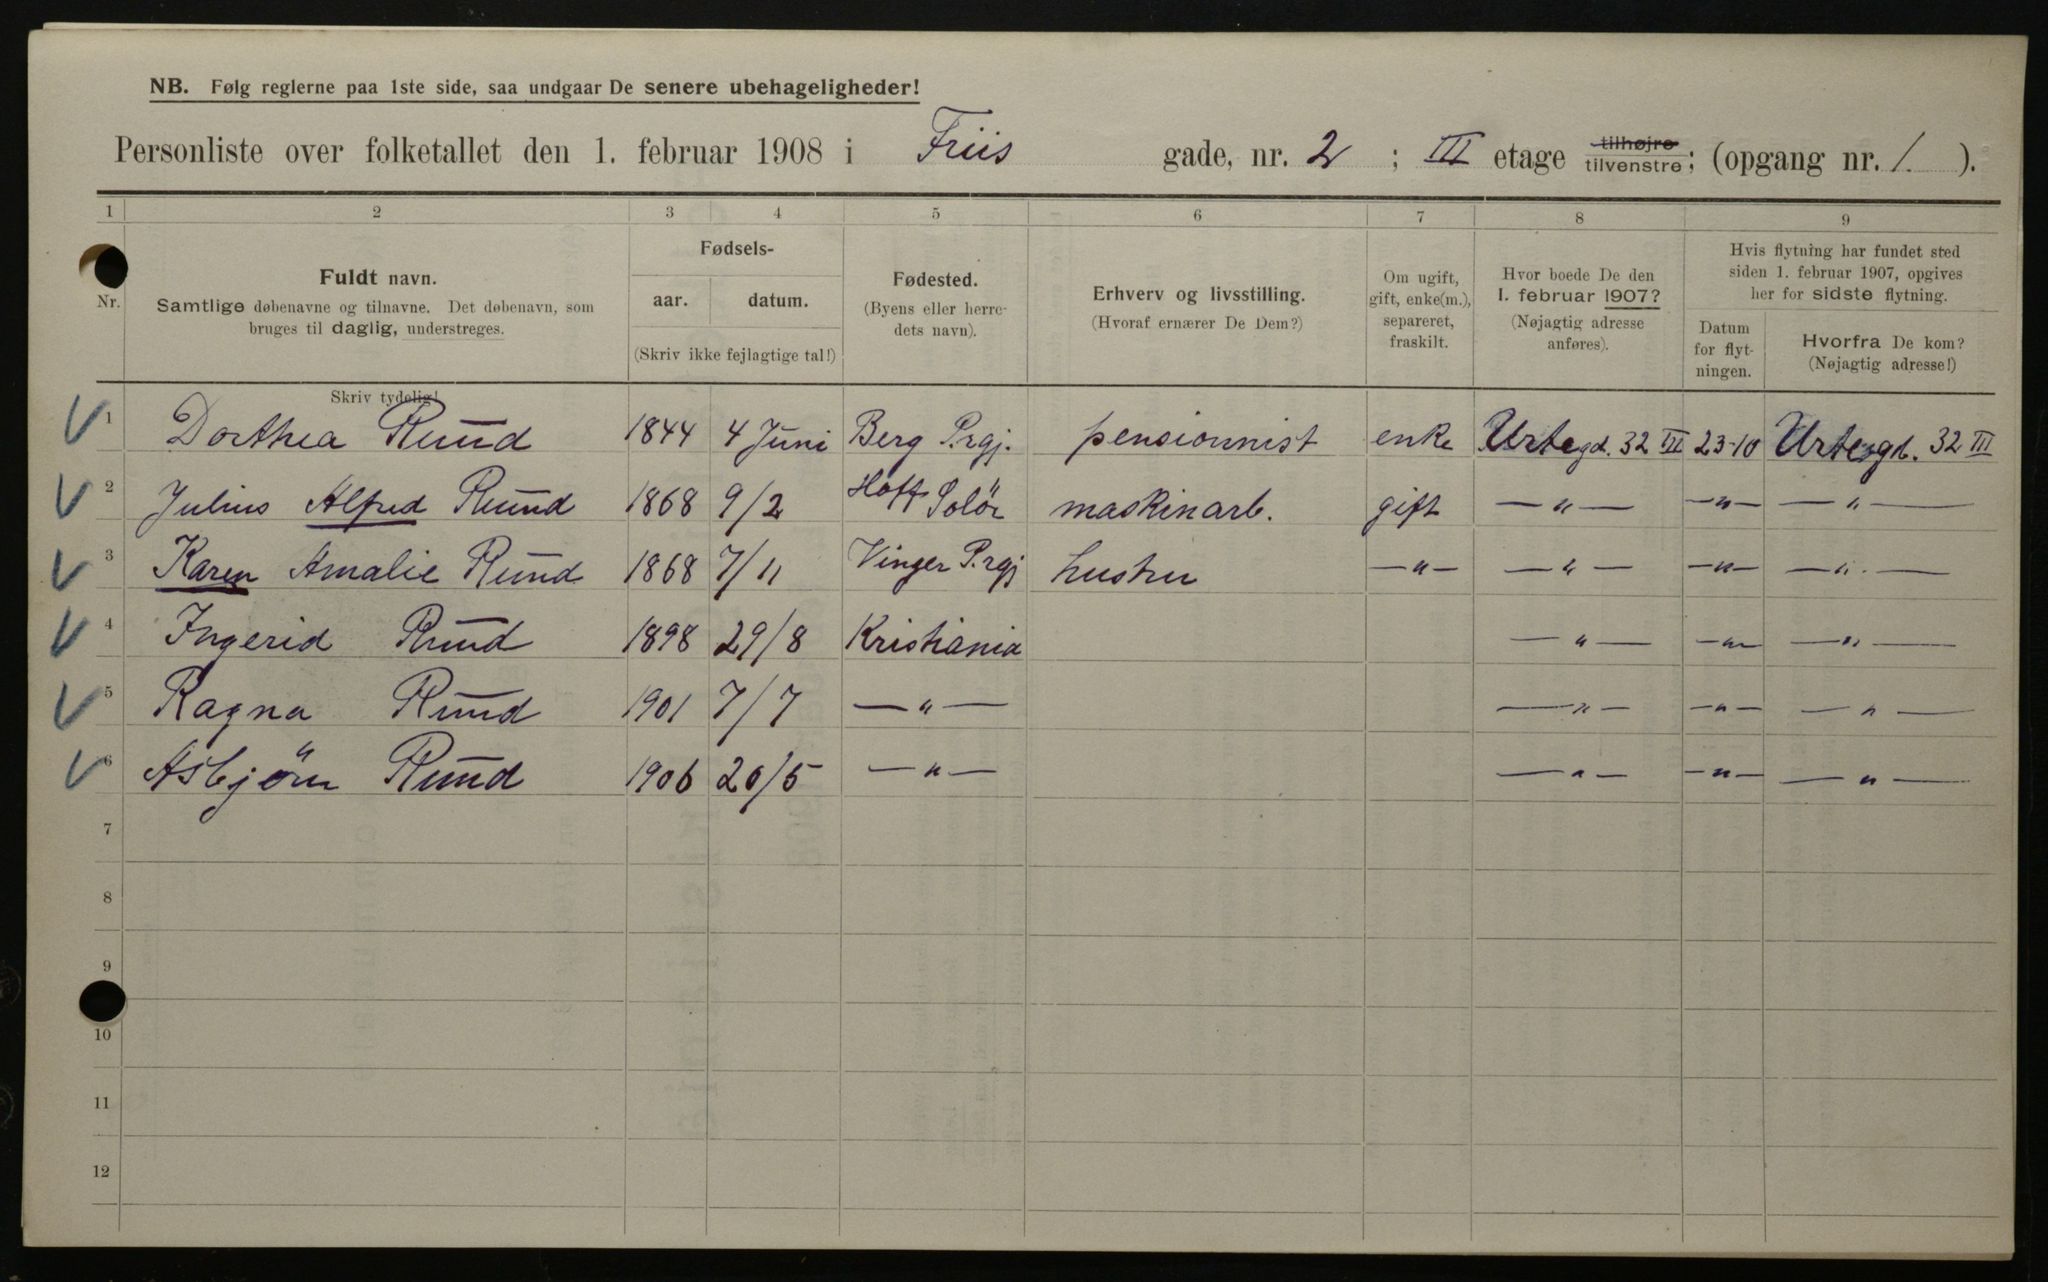 NB. Følg reglerne paa 1ste side, saa undgaar De senere ubehageligheder!
Personliste over folketallet den 1. februar 1908 i Friis gade, nr. 2 ; III etage tilhøjre tilvenstre; (opgang nr. 1. ).
1 2 3 4 5 6 7 8 9
Nr.
Fuldt navn.
Samtlige døbenavne og tilnavne. Det døbenavn, som
bruges til daglig, understreges.
Fødsels-
aar. datum.
(Skriv ikke fejlagtige tal!)
Fødested.
(Byens eller herre-
dets navn).
Erhverv og livsstilling.
(Hvoraf ernærer De Dem?)
Om ugift,
gift, enke(m.),
separeret,
fraskilt.
Hvor boede De den
1. februar 1907?
(Nøjagtig adresse
anføres).
Hvis flytning har fundet sted
siden 1. februar 1907, opgives
her for sidste flytning.
Datum
for flyt-
ningen.
Hvorfra De kom?
(Nøjagtig adresse!)
Skriv tydelig!
1 Dorthea Ruud 1844 4 Juni Berg Prgj. pensionnist enke Urtegd. 32 III 23-10 Urtegd. 32 III
2 Julius Alfred Ruud 1868 9/2 Hoff Solör maskinarb. gift —"— —"— —"—
3 Karen Amalie Ruud 1868 7/11 Vinger Prgj hustru —"— —"— —"— —"—
4 Ingerid Ruud 1898 29/8 Kristiania —"— —"— —"—
5 Ragna Ruud 1901 7/7 —"— —"— —"— —"—
6 Asbjörn Ruud 1906 20/5 —"— —"— —"— —"—
7
8
9
10
11
12